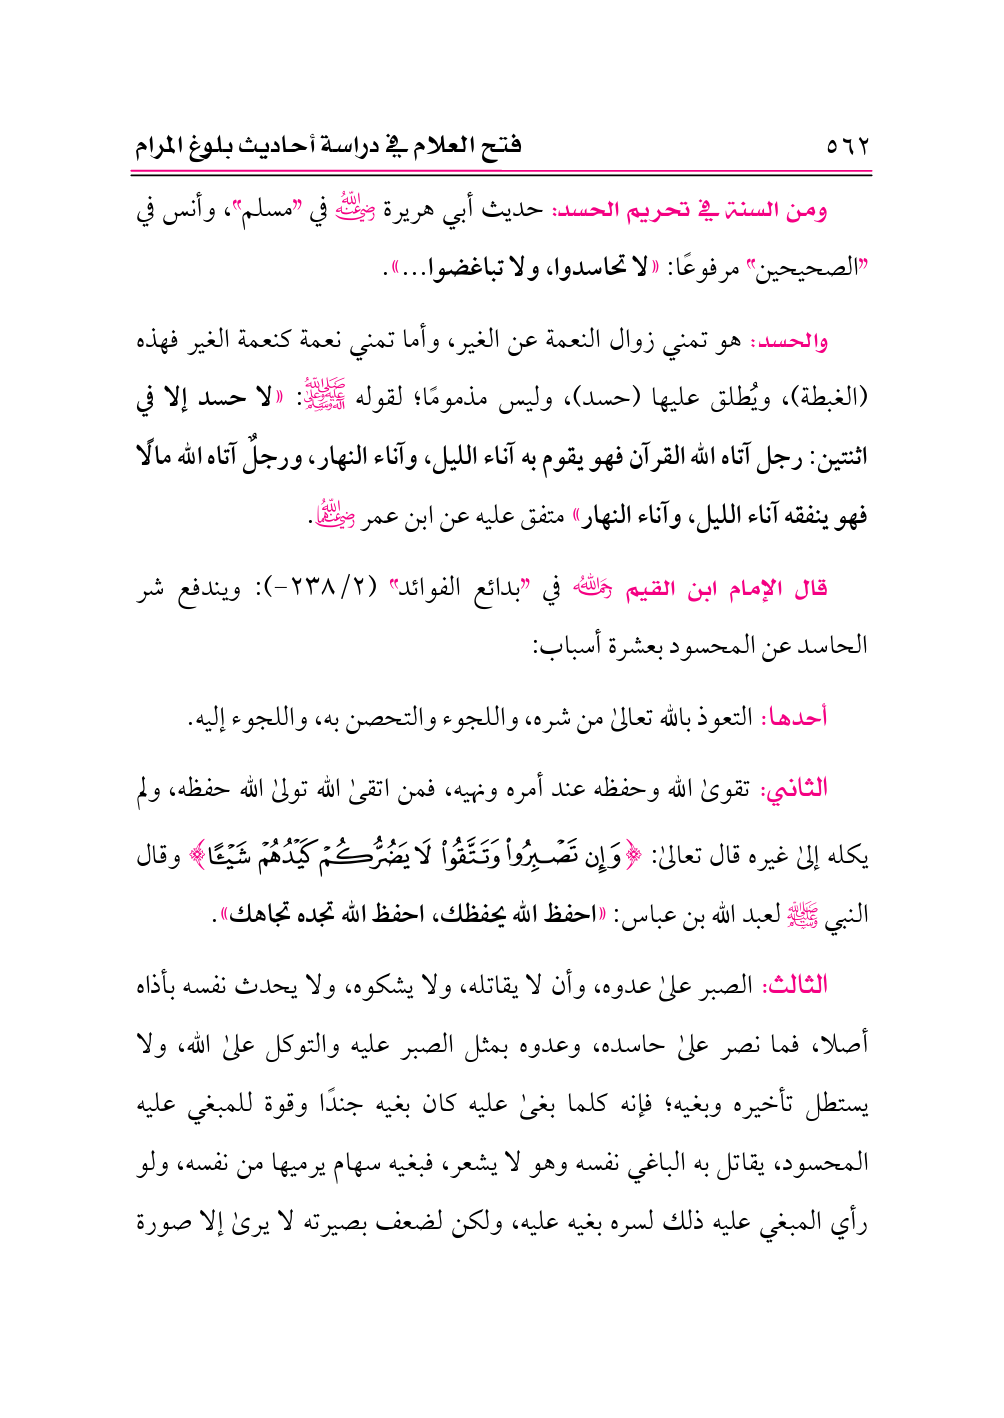 ٥٦٢ فتح العلام في دراسة أحاديث بلوغ المرام
ومن السنة في تحريم الحسد: حديث أبي هريرة رضي الله عنه في "مسلم"، وأنس في
"الصحيحين" مرفوعًا: «لا تحاسدوا، ولا تباغضوا...».
والحسد: هو تمني زوال النعمة عن الغير، وأما تمني نعمة كنعمة الغير فهذه
(الغبطة)، ويُطلق عليها (حسد)، وليس مذمومًا؛ لقوله صلى الله عليه وعلى آله وسلم: «لا حسد إلا في
اثنتين: رجل آتاه الله القرآن فهو يقوم به آناء الليل، وآناء النهار، ورجلٌ آتاه الله مالًا
فهو ينفقه آناء الليل، وآناء النهار» متفق عليه عن ابن عمر رضي الله عنهما.
قال الإمام ابن القيم رحمه الله في "بدائع الفوائد" (٢/٢٣٨-): ويندفع شر
الحاسد عن المحسود بعشرة أسباب:
أحدها: التعوذ بالله تعالىٰ من شره، واللجوء والتحصن به، واللجوء إليه.
الثاني: تقوىٰ الله وحفظه عند أمره ونهيه، فمن اتقىٰ الله تولىٰ الله حفظه، ولم
يكله إلىٰ غيره قال تعالىٰ: ﴿وَإِن تَصۡبِرُواْ وَتَتَّقُواْ لَا يَضُرُّكُمۡ كَيۡدُهُمۡ شَيۡـًٔا﴾ وقال
النبي صلى الله عليه وسلم لعبد الله بن عباس: «احفظ الله يحفظك، احفظ الله تجده تجاهك».
الثالث: الصبر علىٰ عدوه، وأن لا يقاتله، ولا يشكوه، ولا يحدث نفسه بأذاه
أصلا، فما نصر علىٰ حاسده، وعدوه بمثل الصبر عليه والتوكل علىٰ الله، ولا
يستطل تأخيره وبغيه؛ فإنه كلما بغىٰ عليه كان بغيه جندًا وقوة للمبغي عليه
المحسود، يقاتل به الباغي نفسه وهو لا يشعر، فبغيه سهام يرميها من نفسه، ولو
رأي المبغي عليه ذلك لسره بغيه عليه، ولكن لضعف بصيرته لا يرىٰ إلا صورة